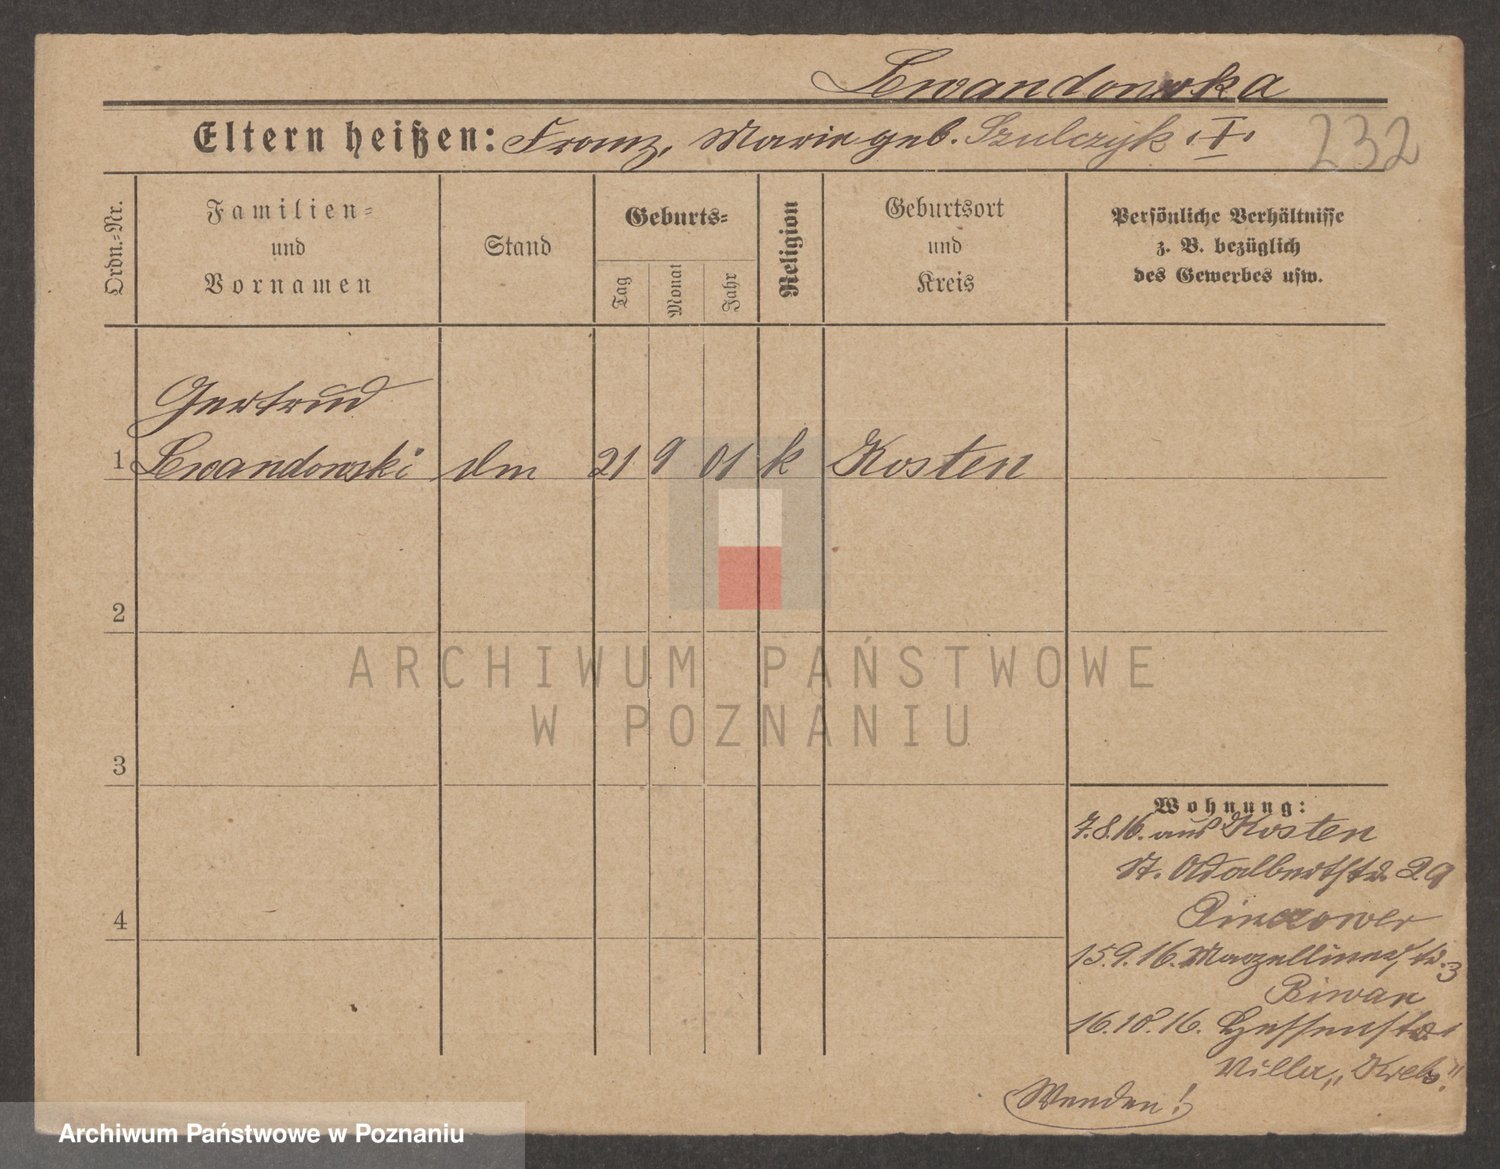 Lewandowska
Eltern heißen: Franz, Marie geb. Szulczyk. I.
232
Ordn.-Nr.
Familien-
und
Vornamen
Stand
Geburts-
Tag
Monat
Jahr
Religion
Geburtsort
und
Kreis
Persönliche Verhältnisse
z. B. bezüglich
des Gewerbes usw.
Gertrud
1 Lewandowski dm 21 9 01 k Kosten
2
3
4
Wohnung:
7.8.16. aus Kosten
St. Adalbertstr. 29
15.9.16. Marzellinestr. 3
Biwan
16.10.16. Hessenstr. 1
Villa „Kreb."
Wenden!
ARCHIWUM PAŃSTWOWE
W POZNANIU
Archiwum Państwowe w Poznaniu